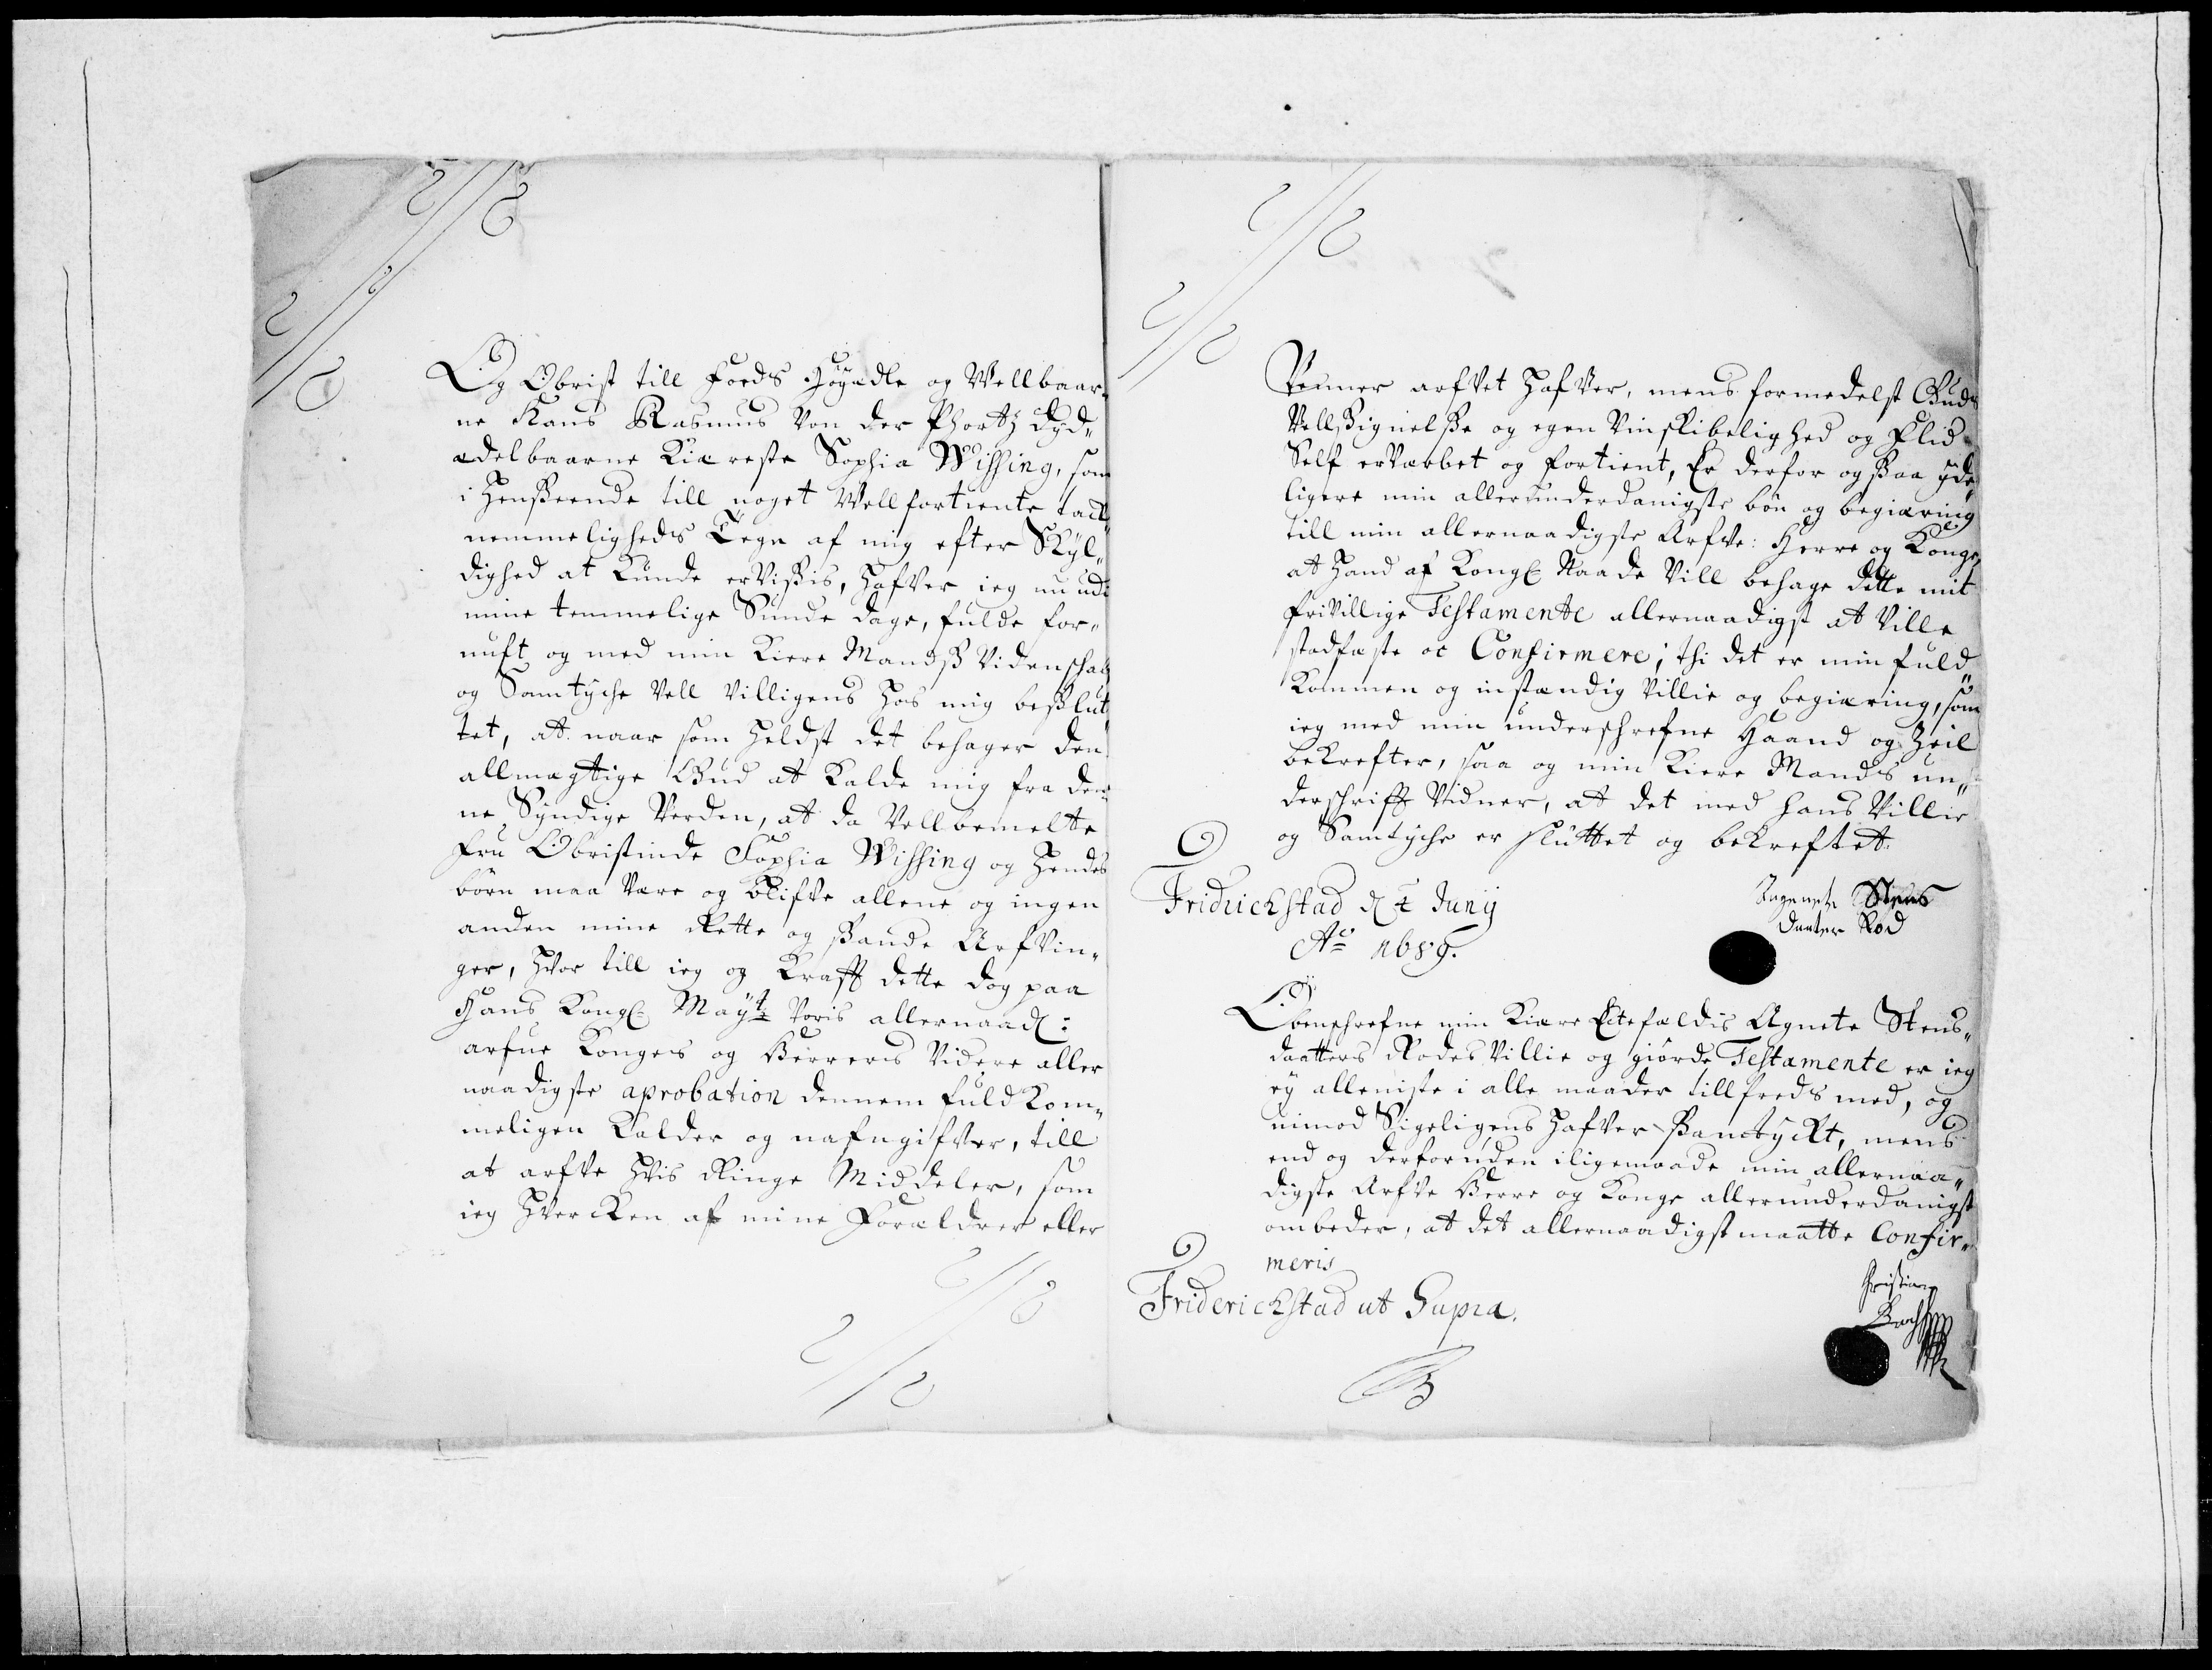 Og Obrist till Foeds Högædle og Wellbaar„
ne Hans Rasmus von der Phortz Dyd„
ædelbaarne Kiæreste Sophia Wissing, som
i Henseende till noget Wellfortiente tack„
nemmeligheds Tegn af mig efter Skÿl„
dighed at kunde ervissis, hafver ieg nu udi
mine temmelige Sunde dage, fulde for„
nuft og med min Kiere Mandß Videnschab
og Samtyche Vell villigens hos mig beßlut
tet, at naar som heldst det behager den
allmægtige Gud at kalde mig fra den„
ne Syndige Verden, at da Vellbemelte
Fru Obristinde Sophia Wissing og hendes
börn maa være og blifve allene og ingen
anden mine Rette og ßande Arfvin„
ger, hvor till ieg og krafft dette dog paa
Hans Kongl: Mayts voris allernaad:
arfve Konges og Herres videre aller
naadigste aprobation dennem fuldkom„
meligen kalder og nafngifver, till
at arfve hvis Ringe Middeler, som
ieg hvercken af mine Forældrer eller
Venner arfvet hafver, mens formedelst Guds
Vellßignelße og egen Vinskibelighed og Flid
Self erværbet og fortient, Er derfor ogßaa ÿde„
ligere min allerunderdanigste bön og begiæring
till min allernaadigste Arfve: Herre og Konge,
at hand af Kongl Naade vill behage dette mit
frivillige Testamente allernaadigst at ville
stadfæste oc Confirmere; thi det er min fuld„
kommen og instændig villie og begiæring, som
ieg med min underschrefne Haand og Zeil
bekrefter, saa og min Kiere Mands un„
derschrifft Vidner, at det med hans Villie
og Samtyche er sluttet og bekreftet.
Fridrichstad d 4 Junÿ
Ao 1689.
Angenete Stens
Daater Rod
Obenschrefne min Kiære Ectefældis Agnete Stens„
daatters Rodes Villie og giörde Testamente er ieg
eÿ alleniste i alle maader tillfreds med, og
nimod Sigeligens hafver ßamtyckt, mens
end og derforuden iligemaade min allernaa„
digste Arfve Herre og Konge allerunderdanigst
ombeder, at det allernaadigst maatte Confir„
meris
Friderichstad ut Supra.
Christian